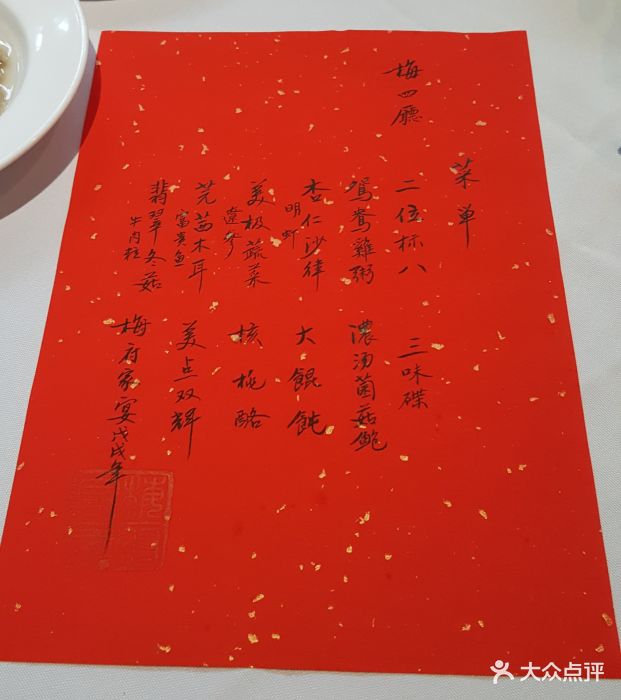 梅四廳
菜单
二位标八
三味碟
鴛鴦雞粥
濃汤菌菇鲍
杏仁沙律
明虾
大餛飩
美极蔬菜
遼参
核桃酪
芫茜木耳
富贵鱼
美点双輝
翡翠冬菇
牛肉粒
梅府家宴戊戌年
大众点评